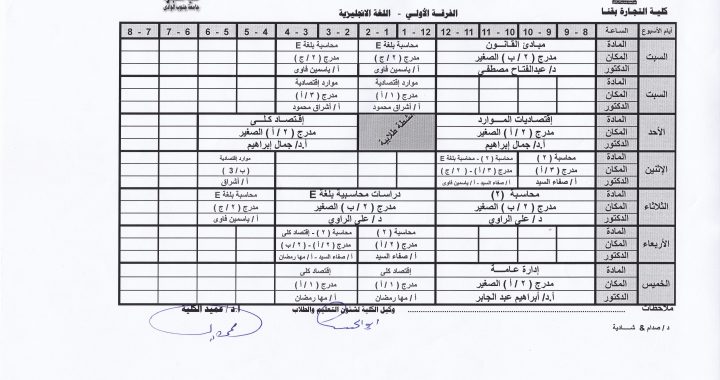 كلية التجارة بقنا
الفرقة الأولي - اللغة الانجليزية
جامعة جنوب الوادى
أيام الأسبوع الساعة 8 - 9 9 - 10 10 - 11 11 - 12 12 - 1 1 - 2 2 - 3 3 - 4 4 - 5 5 - 6 6 - 7 7 - 8
السبت المادة مبادئ القانون محاسبة بلغة E محاسبة بلغة E
المكان مدرج ( ٢ / ب ) الصغير مدرج ( ٢ / ج ) مدرج ( ٢ / ج )
الدكتور د/ عبدالفتاح مصطفي أ / ياسمين فاوى أ / ياسمين فاوى
السبت المادة موارد إقتصادية موارد إقتصادية
المكان مدرج ( ١ / أ ) مدرج ( ٣ / أ )
الدكتور أ / أشراق محمود أ / أشراق محمود
الأحد المادة إقتصاديات الموارد أنشطة طلابية إقتصاد كلى
المكان مدرج ( ٢ / أ ) الصغير مدرج ( ٢ / أ ) الصغير
الدكتور أ.د/ جمال إبراهيم أ.د/ جمال إبراهيم
الإثنين المادة محاسبة ( ٢ ) محاسبة ( ٢ ) - محاسبة بلغة E موارد إقتصادية
المكان مدرج ( ٣ / أ ) مدرج ( ٣ / أ ) - ( ٢ / ج ) ( ب / 3 )
الدكتور أ / صفاء السيد أ / صفاء السيد - أ / ياسمين فاوى أ / أشراق
الثلاثاء المادة محاسبة (٢) دراسات محاسبية بلغة E محاسبة بلغة E
المكان مدرج ( ٢ / ب ) الصغير مدرج ( ٢ / ب ) الصغير مدرج ( ٢ / ج )
الدكتور د / على الراوي د / على الراوي أ / ياسمين فاوى
الأربعاء المادة محاسبة ( ٢ ) محاسبة ( ٢ ) - إقتصاد كلى
المكان مدرج ( ٢ / أ ) مدرج ( ٢ / أ ) - ( ٢ / ب )
الدكتور أ / صفاء السيد أ / صفاء السيد - أ / مها رمضان
الخميس المادة إدارة عامة إقتصاد كلى إقتصاد كلى
المكان مدرج ( ٢ / أ ) الصغير مدرج ( ١ / أ ) مدرج ( ١ / أ )
الدكتور أ.د/ أبراهيم عبد الجابر أ / مها رمضان أ / مها رمضان
ملاحظات
وكيل الكلية لشئون التعليم والطلاب
أ.د/ عميد الكلية
د / صدام & شادية